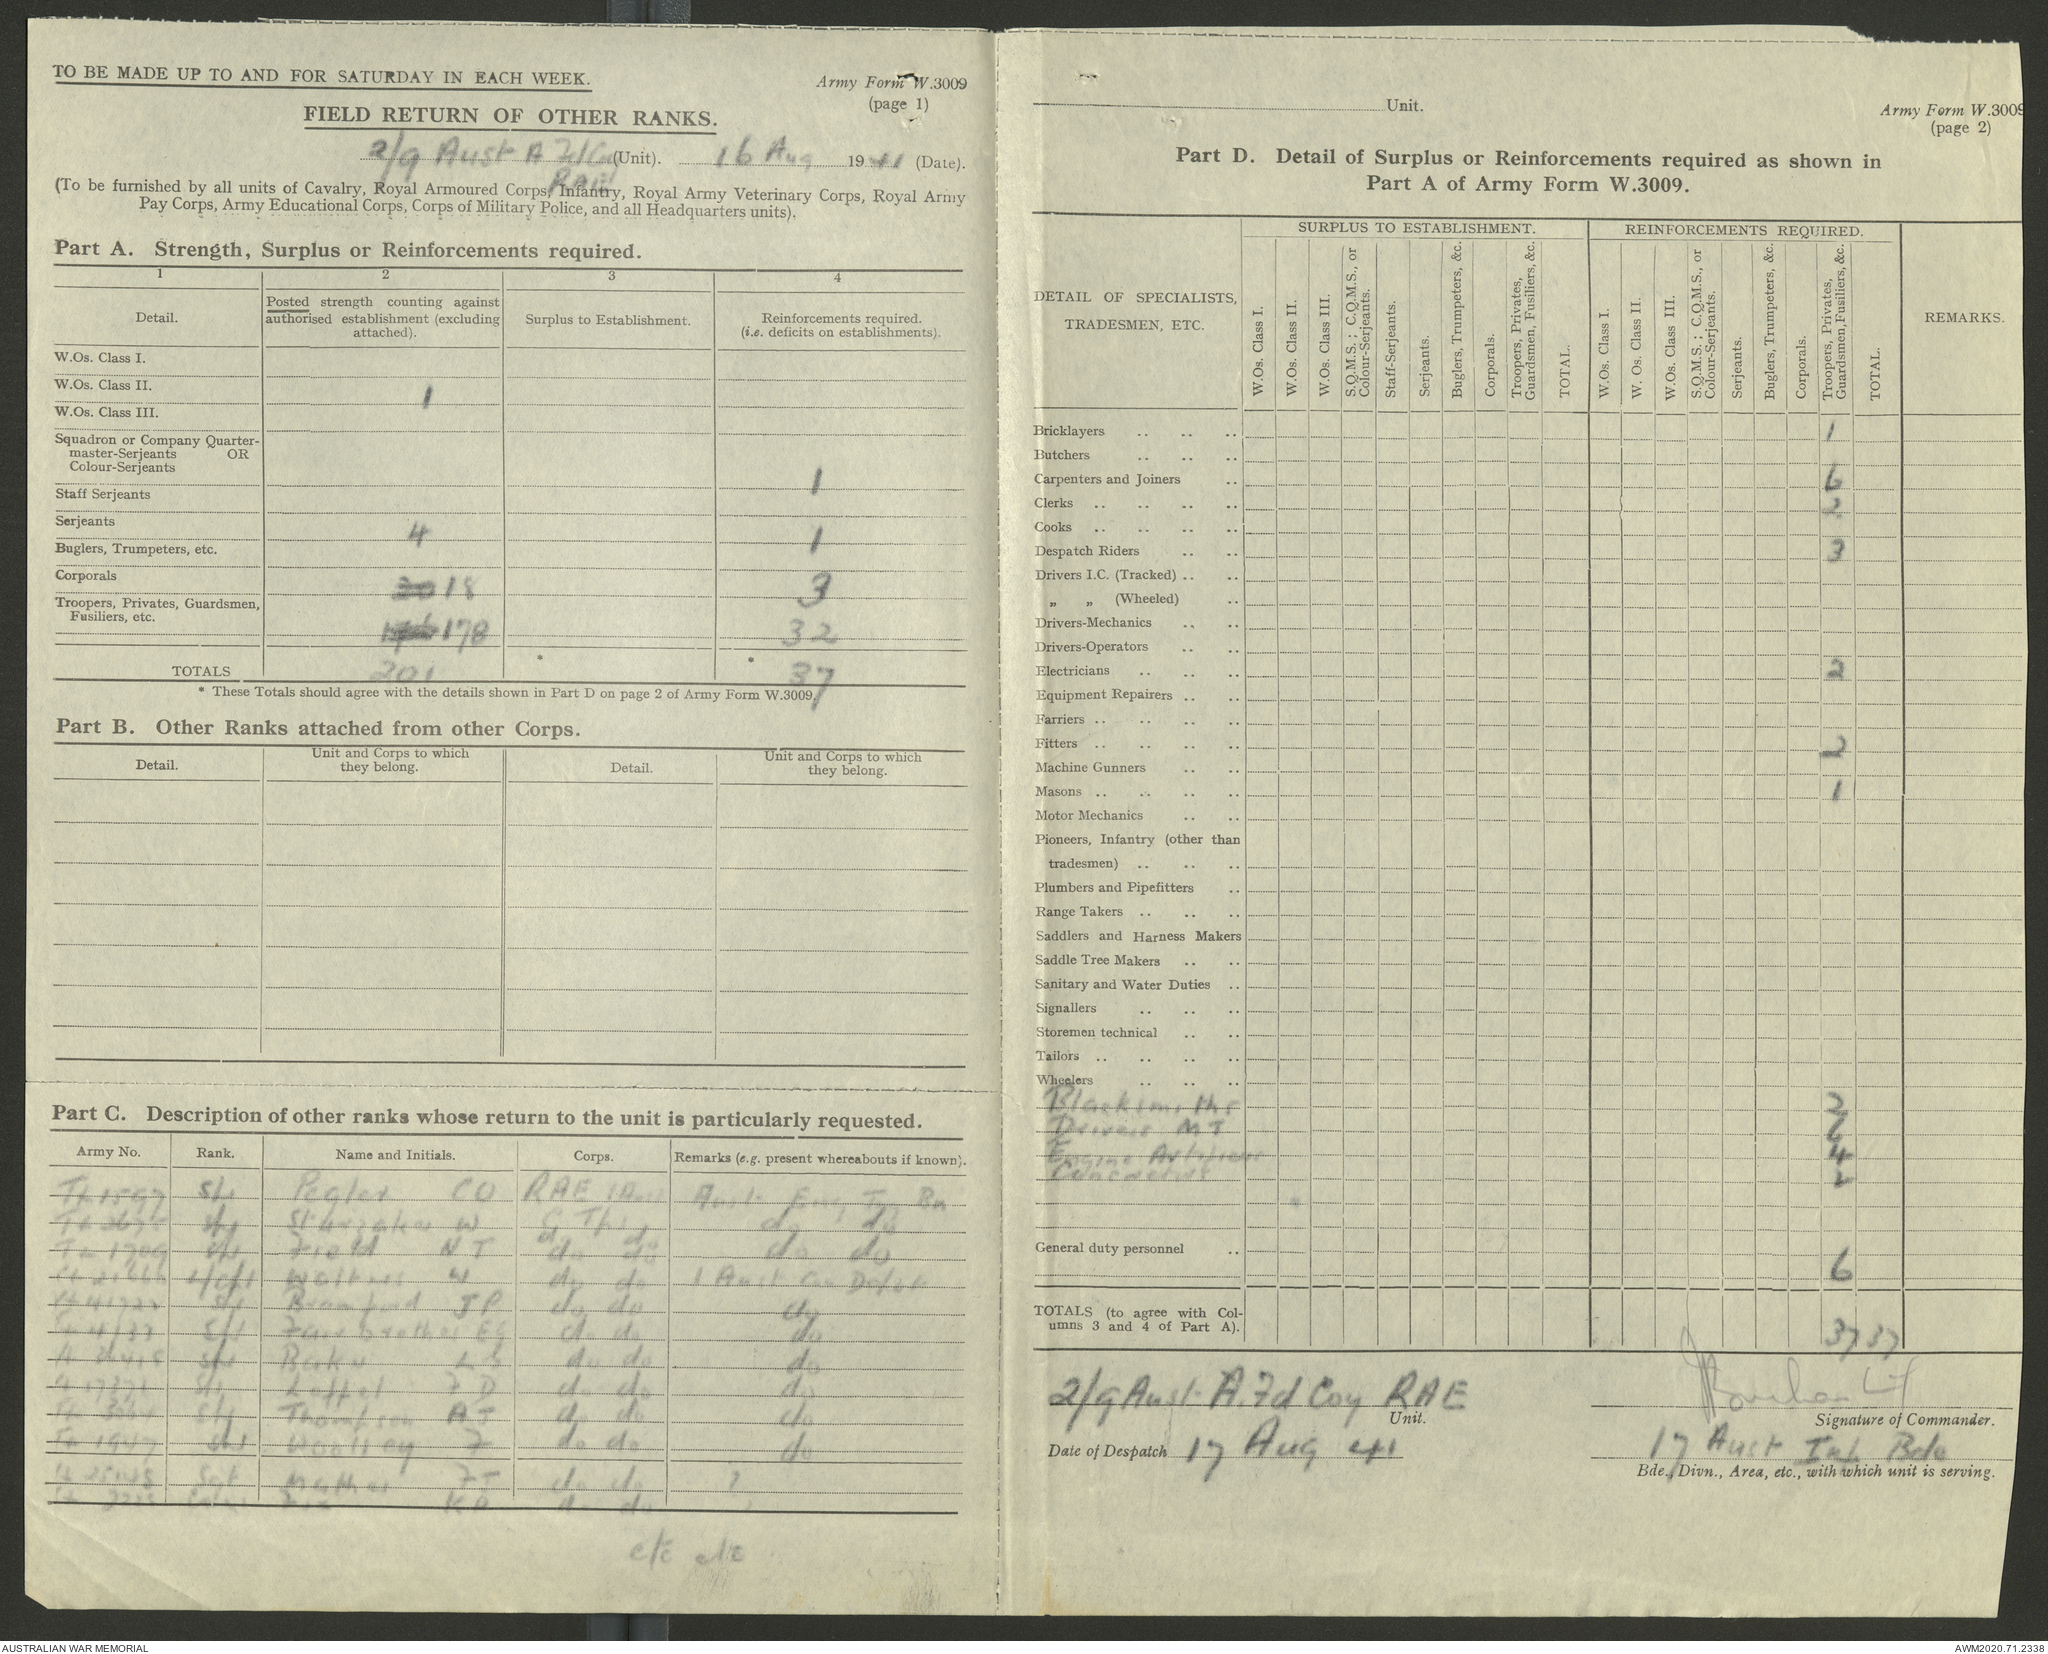 TO BE MADE UP TO AND FOR SATURDAY IN EACH WEEK.
Army Form W.3009
(page 1)
FIELD RETURN OF OTHER RANKS.
2/9 Aust A Fd Coy (Unit). 16 Aug 1941 (Date).
RAE
(To be furnished by all units of Cavalry, Royal Armoured Corps, Infantry, Royal Army Veterinary Corps, Royal Army
Pay Corps, Army Educational Corps, Corps of Military Police, and all Headquarters units).
Part A. Strength, Surplus or Reinforcements required.
1 2 3 4
Detail.
Posted strength counting against
authorised establishment (excluding
attached).
Surplus to Establishment.
Reinforcements required.
(i.e. deficits on establishments).
W.Os. Class I.
W.Os. Class II. 1
W.Os. Class III.
Squadron or Company Quarter-
master-Serjeants OR
Colour-Serjeants 1
Staff Serjeants
Serjeants 4 1
Buglers, Trumpeters, etc.
Corporals 20 18 3
Troopers, Privates, Guardsmen,
Fusiliers, etc. 178 32
TOTALS 201 * * 37
* These Totals should agree with the details shown in Part D on page 2 of Army Form W.3009.
Part B. Other Ranks attached from other Corps.
Detail.
Unit and Corps to which
they belong.
Detail.
Unit and Corps to which
they belong.
Part C. Description of other ranks whose return to the unit is particularly requested.
Army No. Rank. Name and Initials. Corps. Remarks (e.g. present whereabouts if known).
Spr Pegler CO RAE Aust Eng Trg Bn
W do do
Field NT do do do do
do do 1 Aust Con Depot
Spr JP do do do
Spr do do do
Spr do do do
Spr do do do
Spr Thompson AJ do do do
Spr do do do
Spt do do ?
do do
Unit.
Army Form W.3009
(page 2)
Part D. Detail of Surplus or Reinforcements required as shown in
Part A of Army Form W.3009.
DETAIL OF SPECIALISTS,
TRADESMEN, ETC.
SURPLUS TO ESTABLISHMENT.
W.Os. Class I.
W.Os. Class II.
W.Os. Class III.
S.Q.M.S.; C.Q.M.S., or
Colour-Serjeants.
Staff-Serjeants.
Serjeants.
Buglers, Trumpeters, &c.
Corporals.
Troopers, Privates,
Guardsmen, Fusiliers, &c.
TOTAL.
REINFORCEMENTS REQUIRED.
W.Os. Class I.
W. Os. Class II.
W.Os. Class III.
S.Q.M.S.; C.Q.M.S., or
Colour-Serjeants.
Serjeants.
Buglers, Trumpeters, &c.
Corporals.
Troopers, Privates,
Guardsmen, Fusiliers, &c.
TOTAL.
REMARKS.
Bricklayers 1
Butchers
Carpenters and Joiners 6
Clerks 2
Cooks
Despatch Riders 3
Drivers I.C. (Tracked)
„ „ (Wheeled)
Drivers-Mechanics
Drivers-Operators
Electricians 2
Equipment Repairers
Farriers
Fitters 2
Machine Gunners
Masons 1
Motor Mechanics
Pioneers, Infantry (other than
tradesmen)
Plumbers and Pipefitters
Range Takers
Saddlers and Harness Makers
Saddle Tree Makers
Sanitary and Water Duties
Signallers
Storemen technical
Tailors
Wheelers
Blacksmiths 2
Drivers MT 6
Engine Artificers 4
Concretors 2
General duty personnel 6
TOTALS (to agree with Col-
umns 3 and 4 of Part A). 37 37
2/9 Aust A. Fd Coy RAE
Unit.
Lt
Signature of Commander.
Date of Despatch 17 Aug 41
17 Aust Inf Bde
Bde., Divn., Area, etc., with which unit is serving.
AUSTRALIAN WAR MEMORIAL
AWM2020.71.2338